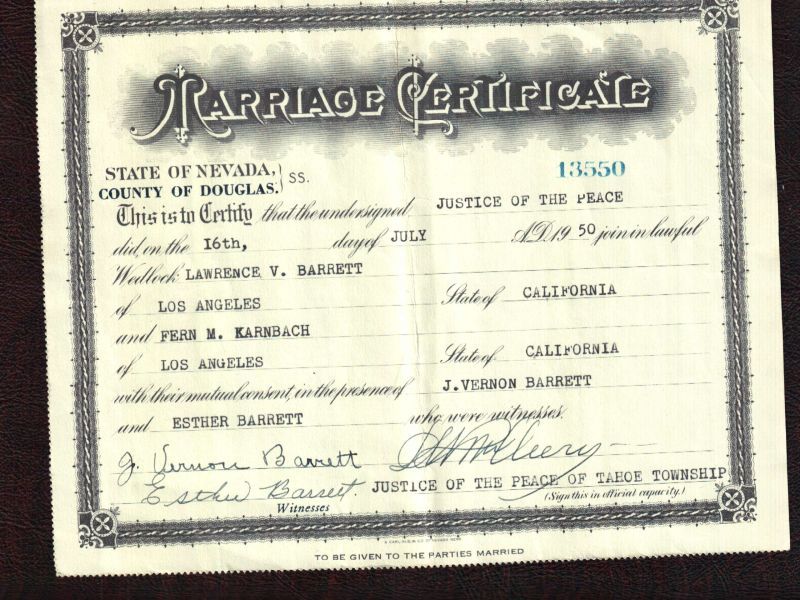 MARRIAGE CERTIFICATE
STATE OF NEVADA, } SS.
13550
COUNTY OF DOUGLAS.
This is to Certify that the undersigned JUSTICE OF THE PEACE
did, on the 16th, day of JULY A.D. 19 50 join in lawful
Wedlock LAWRENCE V. BARRETT
of LOS ANGELES State of CALIFORNIA
and FERN M. KARNBACH
of LOS ANGELES State of CALIFORNIA
with their mutual consent, in the presence of J.VERNON BARRETT
and ESTHER BARRETT who were witnesses.
J. Vernon Barrett
Esther Barrett.
JUSTICE OF THE PEACE OF TAHOE TOWNSHIP
Witnesses
(Sign this in official capacity.)
TO BE GIVEN TO THE PARTIES MARRIED